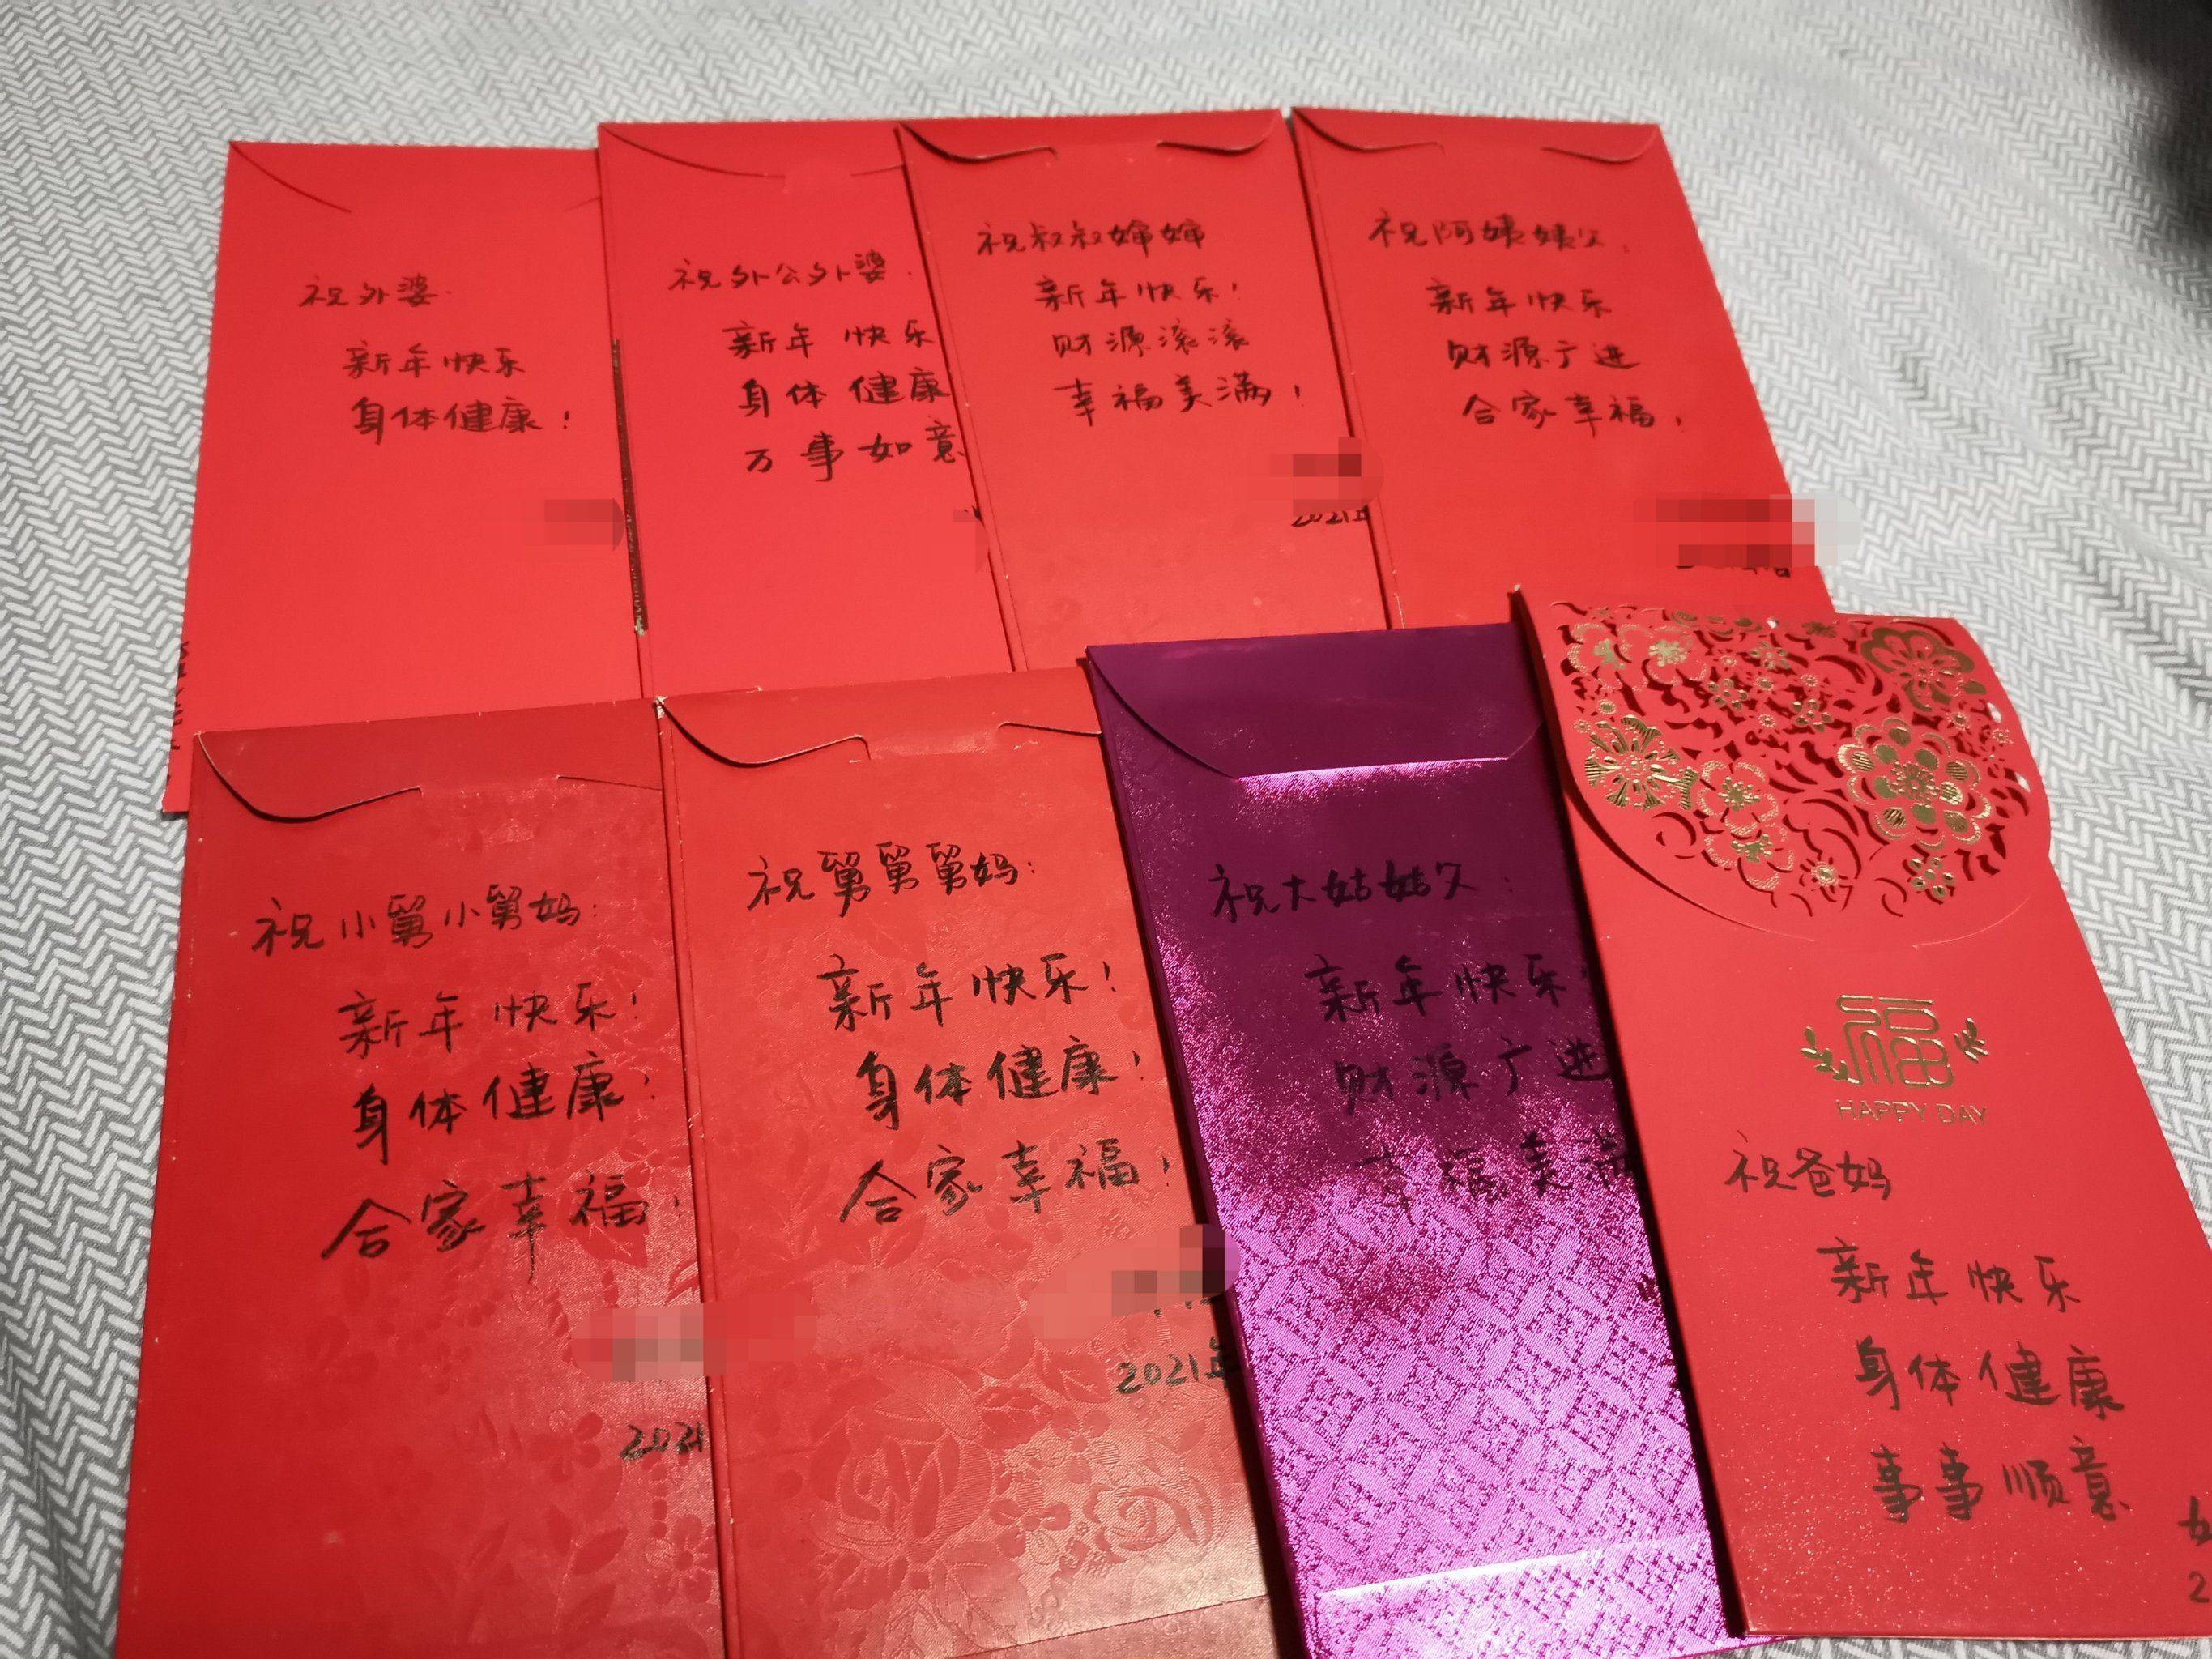 祝外婆
新年快乐
身体健康!
祝外公外婆
新年快乐
身体健康
万事如意
祝叔叔婶婶
新年快乐!
财源滚滚
幸福美满!
2021年
祝阿姨姨父:
新年快乐
财源广进
合家幸福!
祝小舅小舅妈:
新年快乐!
身体健康!
合家幸福!
2021
祝舅舅舅妈:
新年快乐!
身体健康!
合家幸福!
2021年
祝大姑姑父:
新年快乐!
财源广进
幸福美满
福
HAPPY DAY
祝爸妈
新年快乐
身体健康
事事顺意
女
2